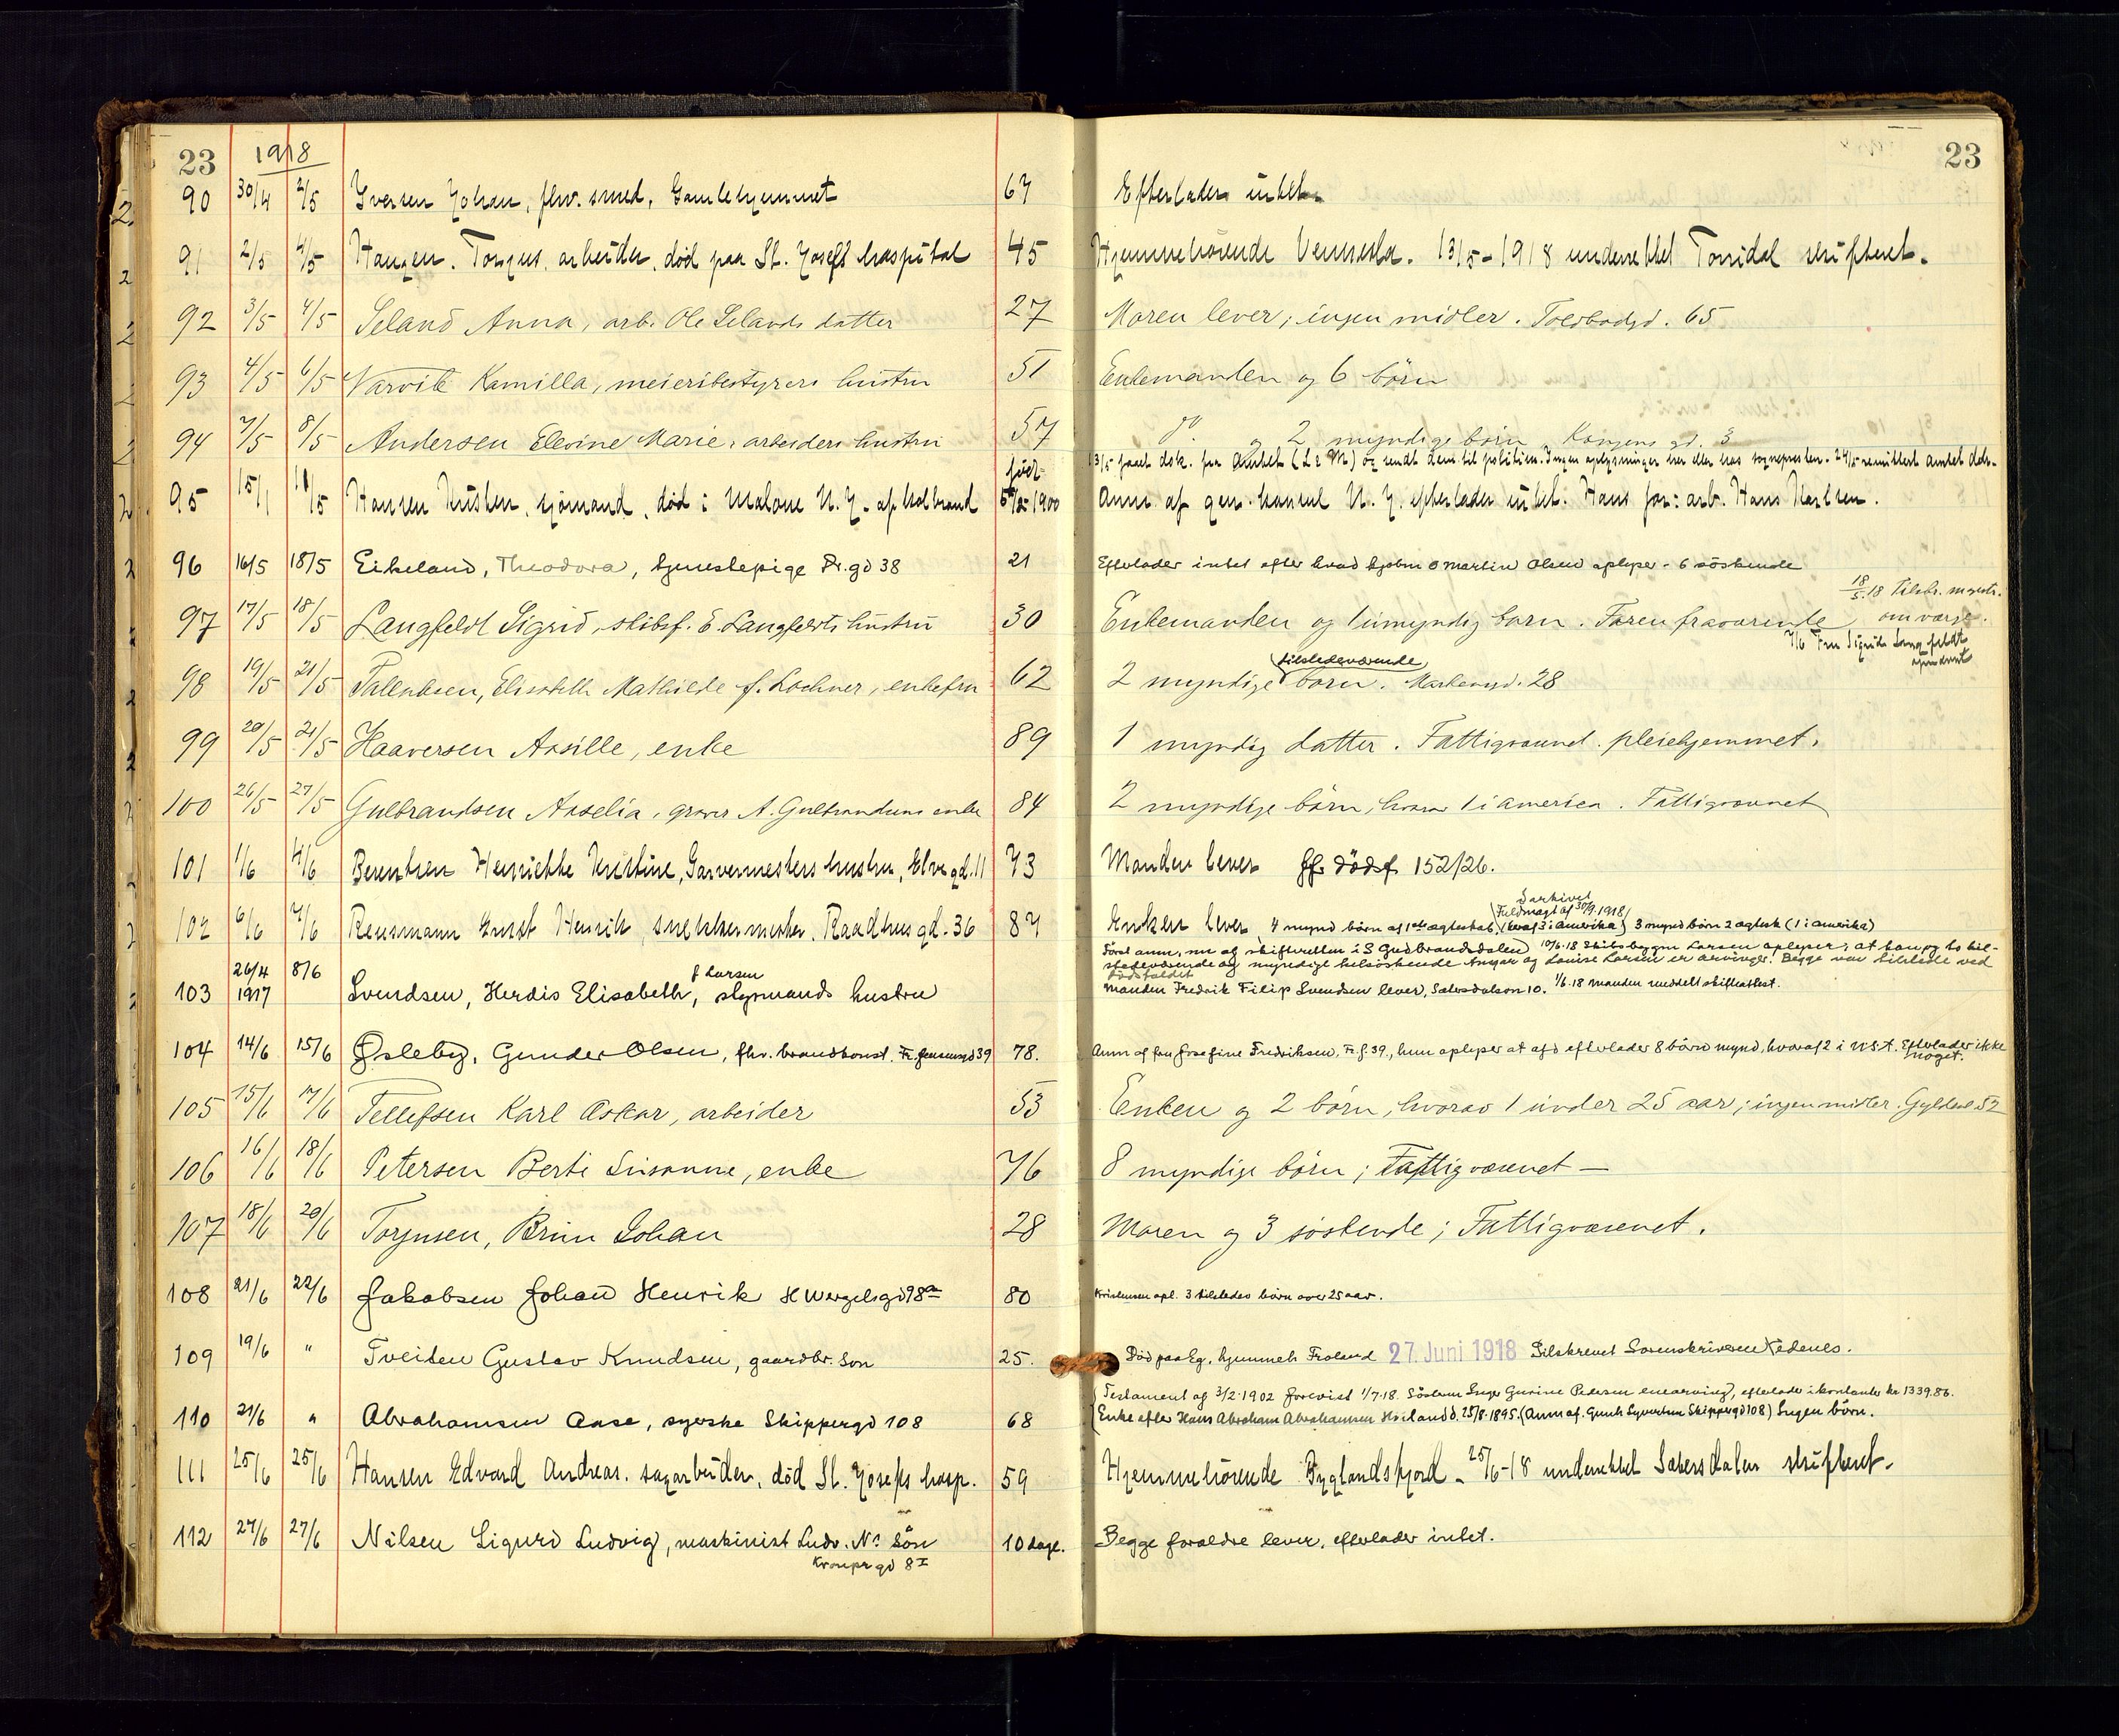 23 1918 23
90 30/4 2/5 Iversen Johan, fhv. smed, Gamlehjemmet 67 Efterlader intet.
91 2/5 4/5 Haugen, arbeider, død paa St. Josefs hospital 45 Hjemmehørende Vennesla. 13/5-1918 underrettet Torridal skifteret.
92 3/5 4/5 Seland Anna, arb. Ole Selands datter 27 Moren lever; ingen midler. Toldbodgd. 65
93 4/5 6/5 Varvik Kamilla, meieribestyrers hustru 51 Enkemanden og 6 børn
94 7/5 8/5 Andersen Elevine Marie, arbeiders hustru 57 do. og 2 myndige børn, Kongens gd. 3
13/5 faaet dsk. fra Amtet (L & M) og sendt dem til politiet. Ingen oplysninger her eller hos sognepresten. 24/5 remittert amtet dok.
95 15/1 11/5 Hansen, sjømand, død i Malone N.Y. af koldbrand født 5/2-1900 Anm. af gen. konsul N.Y. efterlader intet. Hans far: arb. Hans Karlsen.
96 16/5 18/5 Eikeland, Theodora, tjenestepige Dr. gd 38 21 Efterlader intet efter hvad kjøbm O Martin Olsen oplyser - 6 søskende
18/5.18 Tilskr. magistr.
97 17/5 18/5 Langfeldt Sigrid, skibsf. E. Langfeldts hustru 30 Enkemanden og 1 umyndig barn. Faren fraværende om værge.
7/6 Fru Sigrid Langfeldt
98 19/5 21/5 Tallaksen, Elisabeth Mathilde f. Lochner, enkefru 62 2 myndige tilstedeværende børn. Markensgd. 28
99 20/5 21/5 Haaversen Assille, enke 89 1 myndig datter. Fattigvæsnet. pleiehjemmet.
100 26/5 27/5 Gulbrandsen Aaselia, graver A. Gulbrandsens enke 84 2 myndige børn, hvorav 1 i america. Fattigvæsnet
101 1/6 4/6 Berentsen Henriette Kristine, Garvermesters hustru, Elvegd. 11 73 Manden lever jfr. dødsf 152/26.
I arkivet
Fuldmagt af 30/9.1918
102 6/6 7/6 Reusmann Ernst Henrik, snekkermester, Raadhusgd. 36 87 Enken lever 4 mynd børn af 1ste egteskab (hvoraf 3 i Amerika) 3 mynd børn 2 egtesk (1 i amerika)
Først anm. nu af skifteretten i S Gudbrandsdalen 10/6.18 Skibsbyggm Larsen oplyser, at han og to til-
stedeværende og myndige helsøskende Ansgar og Louise Larsen er arvinger. Begge var tilstede ved
dødsfaldet
103 26/4 1917 8/6 Svendsen, Herdis Elisabeth, f Larsen styrmands hustru Manden Fredrik Filip Svendsen lever, Sætersdalsvn 10. 1/6.18 manden meddelt skifteattest.
104 14/6 15/6 Østeby, Gunder Olsen, fhv. brandkonst. Fr. fransensgd 39 78. Anm af fru Josefine Fredriksen, Fr. f. 39., hun oplyser at afd efterlader 8 børn mynd, hvoraf 2 i U.S.A. Efterlader ikke
noget.
105 15/6 17/6 Tellefsen Karl Oskar, arbeider 53 Enken og 2 børn, hvorav 1 under 25 aar; ingen midler. Gyldenl. 52
106 16/6 18/6 Petersen Berti Susanne, enke 76 8 myndige børn; Fattigvæsenet —
107 18/6 20/6 Torjusen, Brun Johan 28 Moren og 3 søskende; Fattigvæsenet.
108 21/6 22/6 Jakobsen Johan Henrik H Wergelsgd 98a 80 Kristensen opl. 3 tilstedev børn over 25 aar.
109 19/6 " Tveiten Gustav Knudsen, gaardbr. søn 25. Død paa Eg. hjemmeh Froland 27. Juni 1918 Tilskrevet Sorenskriveren Nedenes.
Testament af 3/2.1902 forevist 1/7.18. Søsteren Inger Gurine Pedersen enearving, efterlader i kontanter kr 1339.86.
110 21/6 " Abrahamsen Aase, syerske Skippergd 108 68 Enke efter Hans Abraham Abrahamsen Høiland d. 25/8.1895. (Anm af. Gunh Syvertsen Skippergd 108) Ingen børn.
111 25/6 25/6 Hansen Edvard Andreas, sagarbeider, død St. Josefs hosp. 59 Hjemmehørende Byglandsfjord - 25/6-18 underrettet Sætersdalen skifteret.
112 27/6 27/6 Nilsen Sigurd Ludvig, maskinist Ludv. Ns søn 10 dage. Begge forældre lever, efterlader intet.
Kronprgd 8 I